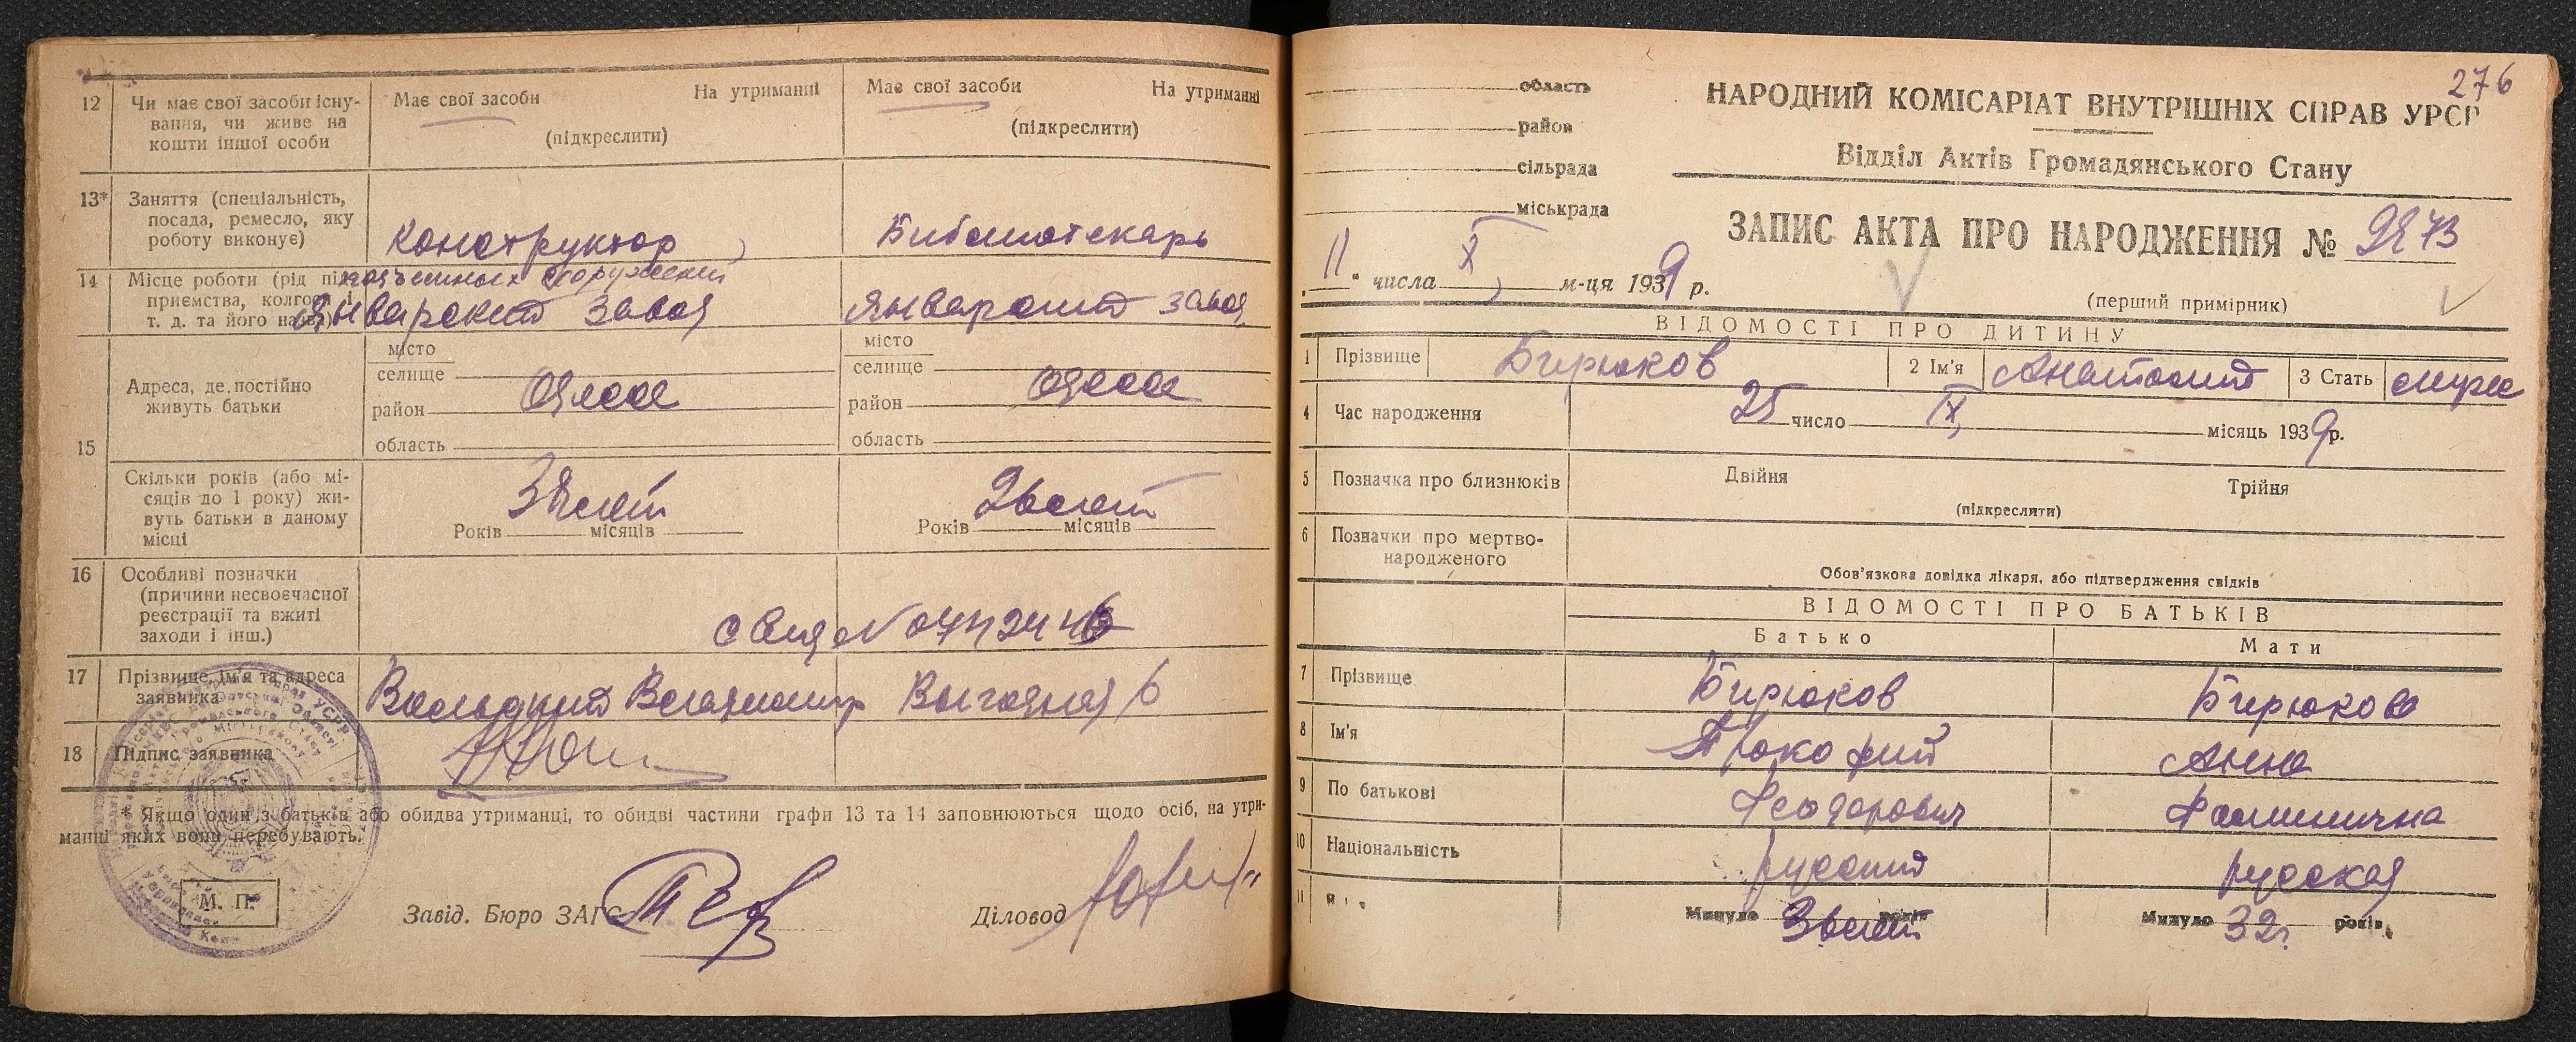 12 Чи має свої засоби існу-
вання, чи живе на
кошти іншої особи
Має свої засоби На утриманні
(підкреслити)
Має свої засоби На утриманні
(підкреслити)
13* Заняття (спеціальність,
посада, ремесло, яку
роботу виконує)
Конструктор
Библиотекарь
14 Місце роботи (рід під-
приємства, колгосп і
т. д. та його назва)
Январский завод
Январский завод
15 Адреса, де постійно
живуть батьки
місто
селище
район
область
Одесса
місто
селище
район
область
Одесса
Скільки років (або мі-
сяців до 1 року) жи-
вуть батьки в даному
місці
лет
Років місяців
лет
Років місяців
16 Особливі позначки
(причини несвоєчасної
реєстрації та вжиті
заходи і інш.)
17 Прізвище, ім'я та адреса
заявника
18 Підпис заявника
Якщо один з батьків або обидва утриманці, то обидві частини графи 13 та 14 заповнюються щодо осіб, на утри-
манні яких вони перебувають.
М. П.
Завід. Бюро ЗАГС
Діловод
276
область
район
сільрада
міськрада
НАРОДНИЙ КОМІСАРІАТ ВНУТРІШНІХ СПРАВ УРСР
Відділ Актів Громадянського Стану
ЗАПИС АКТА ПРО НАРОДЖЕННЯ №
"11" числа X м-ця 1939 р.
(перший примірник)
ВІДОМОСТІ ПРО ДИТИНУ
1 Прізвище Бирюков 2 Ім'я Анатолий 3 Стать муж
4 Час народження 25 число IX, місяць 1939 р.
5 Позначка про близнюків Двійня Трійня
(підкреслити)
6 Позначки про мертво-
народженого
Обов'язкова довідка лікаря, або підтвердження свідків
ВІДОМОСТІ ПРО БАТЬКІВ
Батько Мати
7 Прізвище Бирюков Бирюкова
8 Ім'я Прокофий Анна
9 По батькові Феодорович
10 Національність русский русская
11 Минуло років Минуло 32 г. років